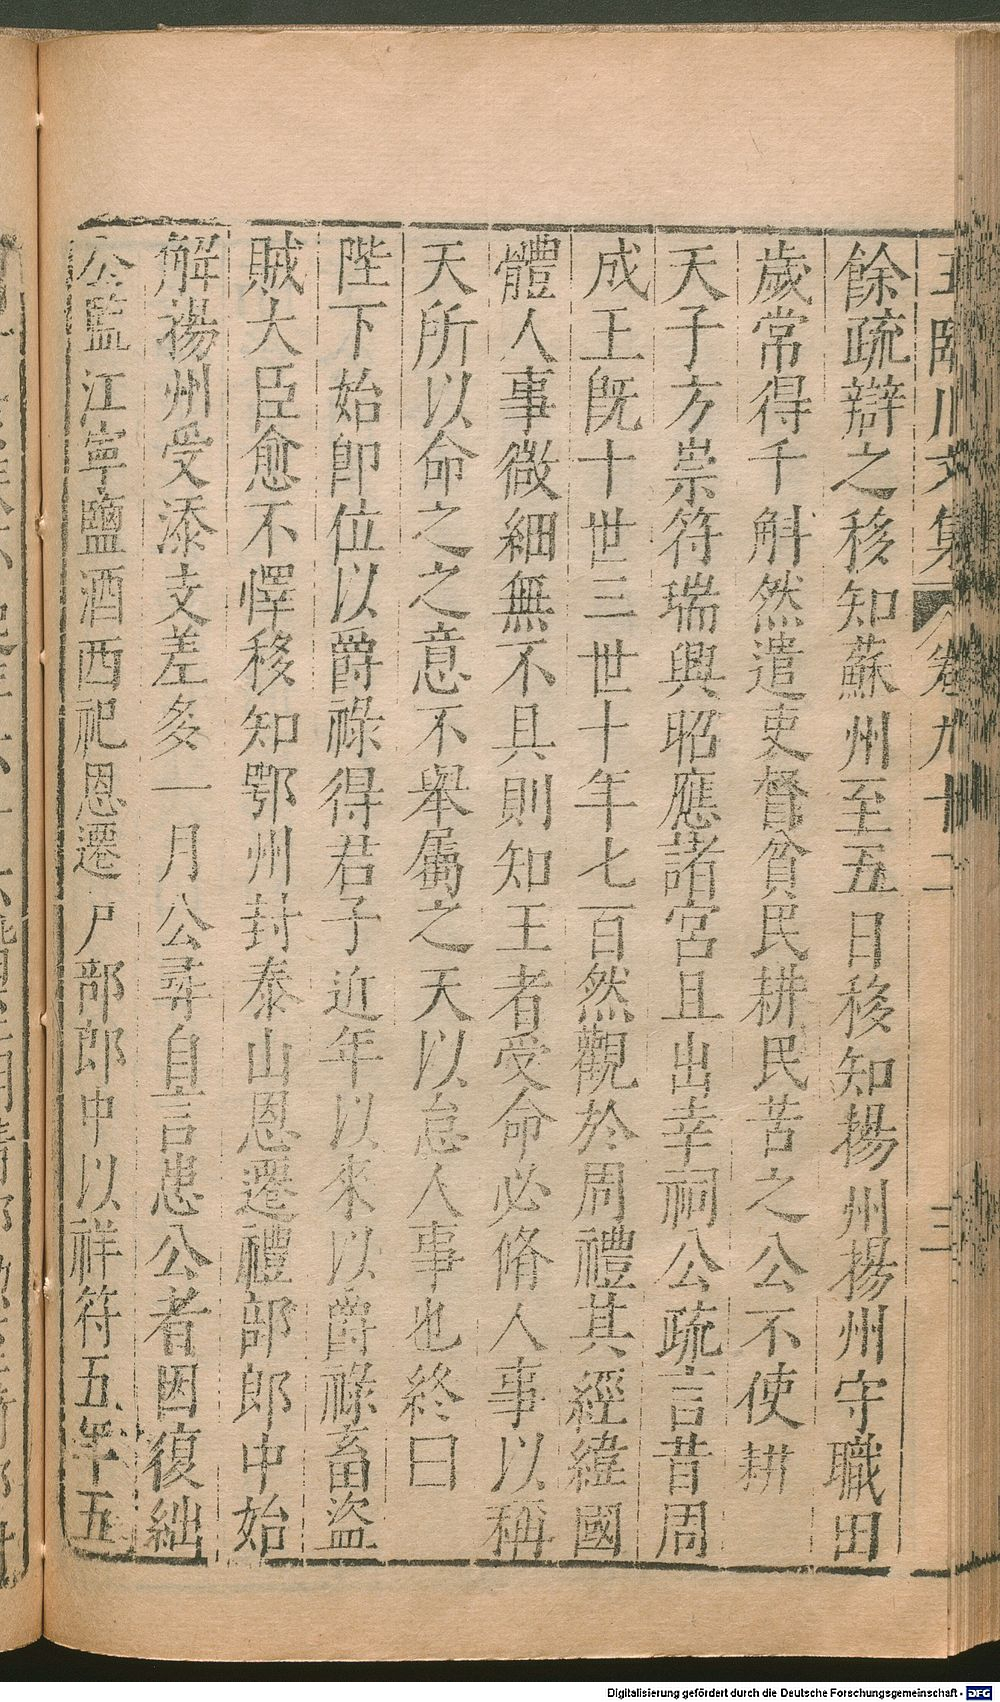 王臨川文集 卷九十二 三
餘疏辯之移知蘇州至五日移知揚州揚州守職田
歲常得千斛然遣吏督貧民耕民苦之公不使耕
天子方崇符瑞興昭應諸宮且出幸祠公疏言昔周
成王旣十世三世十年七百然觀於周禮其經緯國
體人事微細無不具則知王者受命必脩人事以稱
天所以命之之意不舉屬之天以怠人事也終曰
陛下始即位以爵祿得君子近年以來以爵祿畜盜
賊大臣愈不懌移知鄂州封泰山恩遷禮部郎中始
解揚州受添支差多一月公尋自言患公者因復絀
公監江寧鹽酒西祀恩遷戸部郎中以祥符五年五
Digitalisierung gefördert durch die Deutsche Forschungsgemeinschaft - DFG